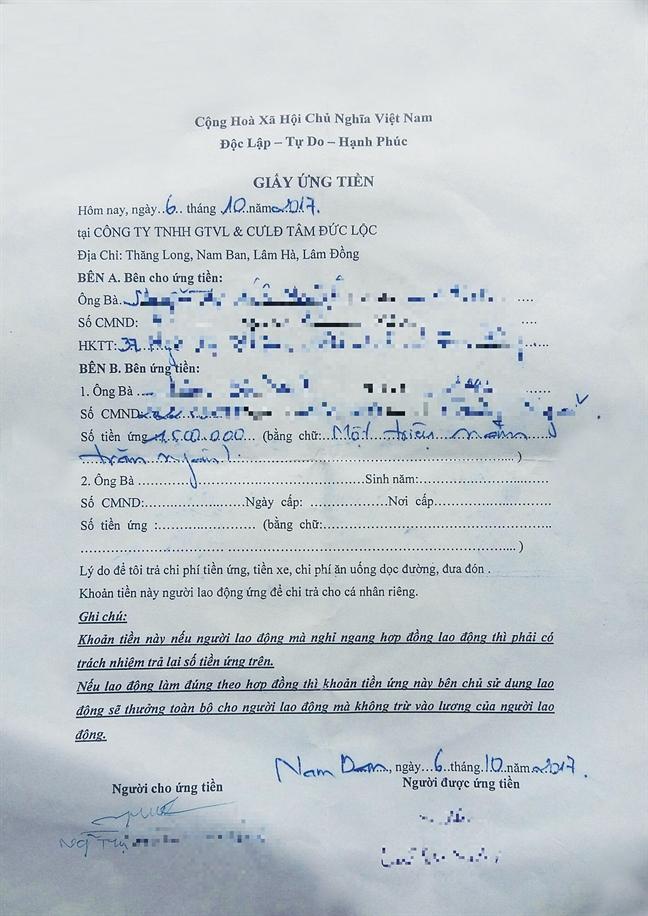 Cộng Hoà Xã Hội Chủ Nghĩa Việt Nam
Độc Lập – Tự Do – Hạnh Phúc
GIẤY ỨNG TIỀN
Hôm nay, ngày..6.. tháng .10.năm..2017.
tại CÔNG TY TNHH GTVL & CƯLĐ TÂM ĐỨC LỘC
Địa Chỉ: Thăng Long, Nam Ban, Lâm Hà, Lâm Đồng
BÊN A. Bên cho ứng tiền:
Ông Bà
Số CMND:
HKTT:
BÊN B. Bên ứng tiền:
1. Ông Bà
Số CMND:
Số tiền ứng 1.500.000 (bằng chữ: Một triệu năm
trăm ngàn )
2. Ông Bà ........ Sinh năm:........
Số CMND:........Ngày cấp: ........Nơi cấp........
Số tiền ứng :........ (bằng chữ:........
........ )
Lý do để tôi trả chi phí tiền ứng, tiền xe, chi phí ăn uống dọc đường, đưa đón .
Khoản tiền này người lao động ứng để chi trả cho cá nhân riêng.
Ghi chú:
Khoản tiền này nếu người lao động mà nghỉ ngang hợp đồng lao động thì phải có
trách nhiệm trả lai số tiền ứng trên.
Nếu lao động làm đúng theo hợp đồng thì khoản tiền ứng này bên chủ sử dung lao
động sẽ thưởng toàn bộ cho người lao động mà không trừ vào lương của người lao
động.
Nam Ban, ngày...6...tháng.10.năm 2017.
Người cho ứng tiền
Người được ứng tiền